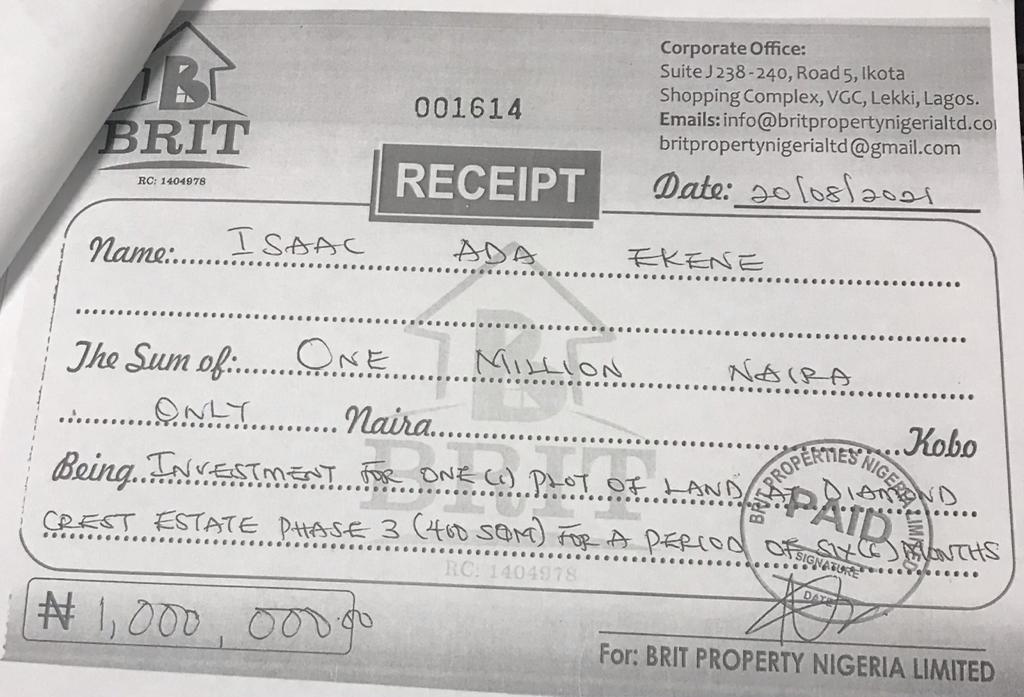 BRIT
RC: 1404978
001614
RECEIPT
Corporate Office:
Suite J 238-240, Road 5, Ikota
Shopping Complex, VGC, Lekki, Lagos.
Emails: info@britpropertynigerialtd.co
britpropertynigerialtd@gmail.com
Date: 20/08/2021
Name: ISAAC ADA EKENE
The Sum of: ONE MILLION NAIRA
ONLY Naira Kobo
Being INVESTMENT FOR ONE (1) PLOT OF LAND AT DIAMOND
CREST ESTATE PHASE 3 (400 SQM) FOR A PERIOD OF SIX (6) MONTHS
BRIT
RC: 1404978
BRIT PROPERTIES NIGERIA LIMITED
PAID
SIGNATURE
DATE
₦ 1,000,000.00
For: BRIT PROPERTY NIGERIA LIMITED